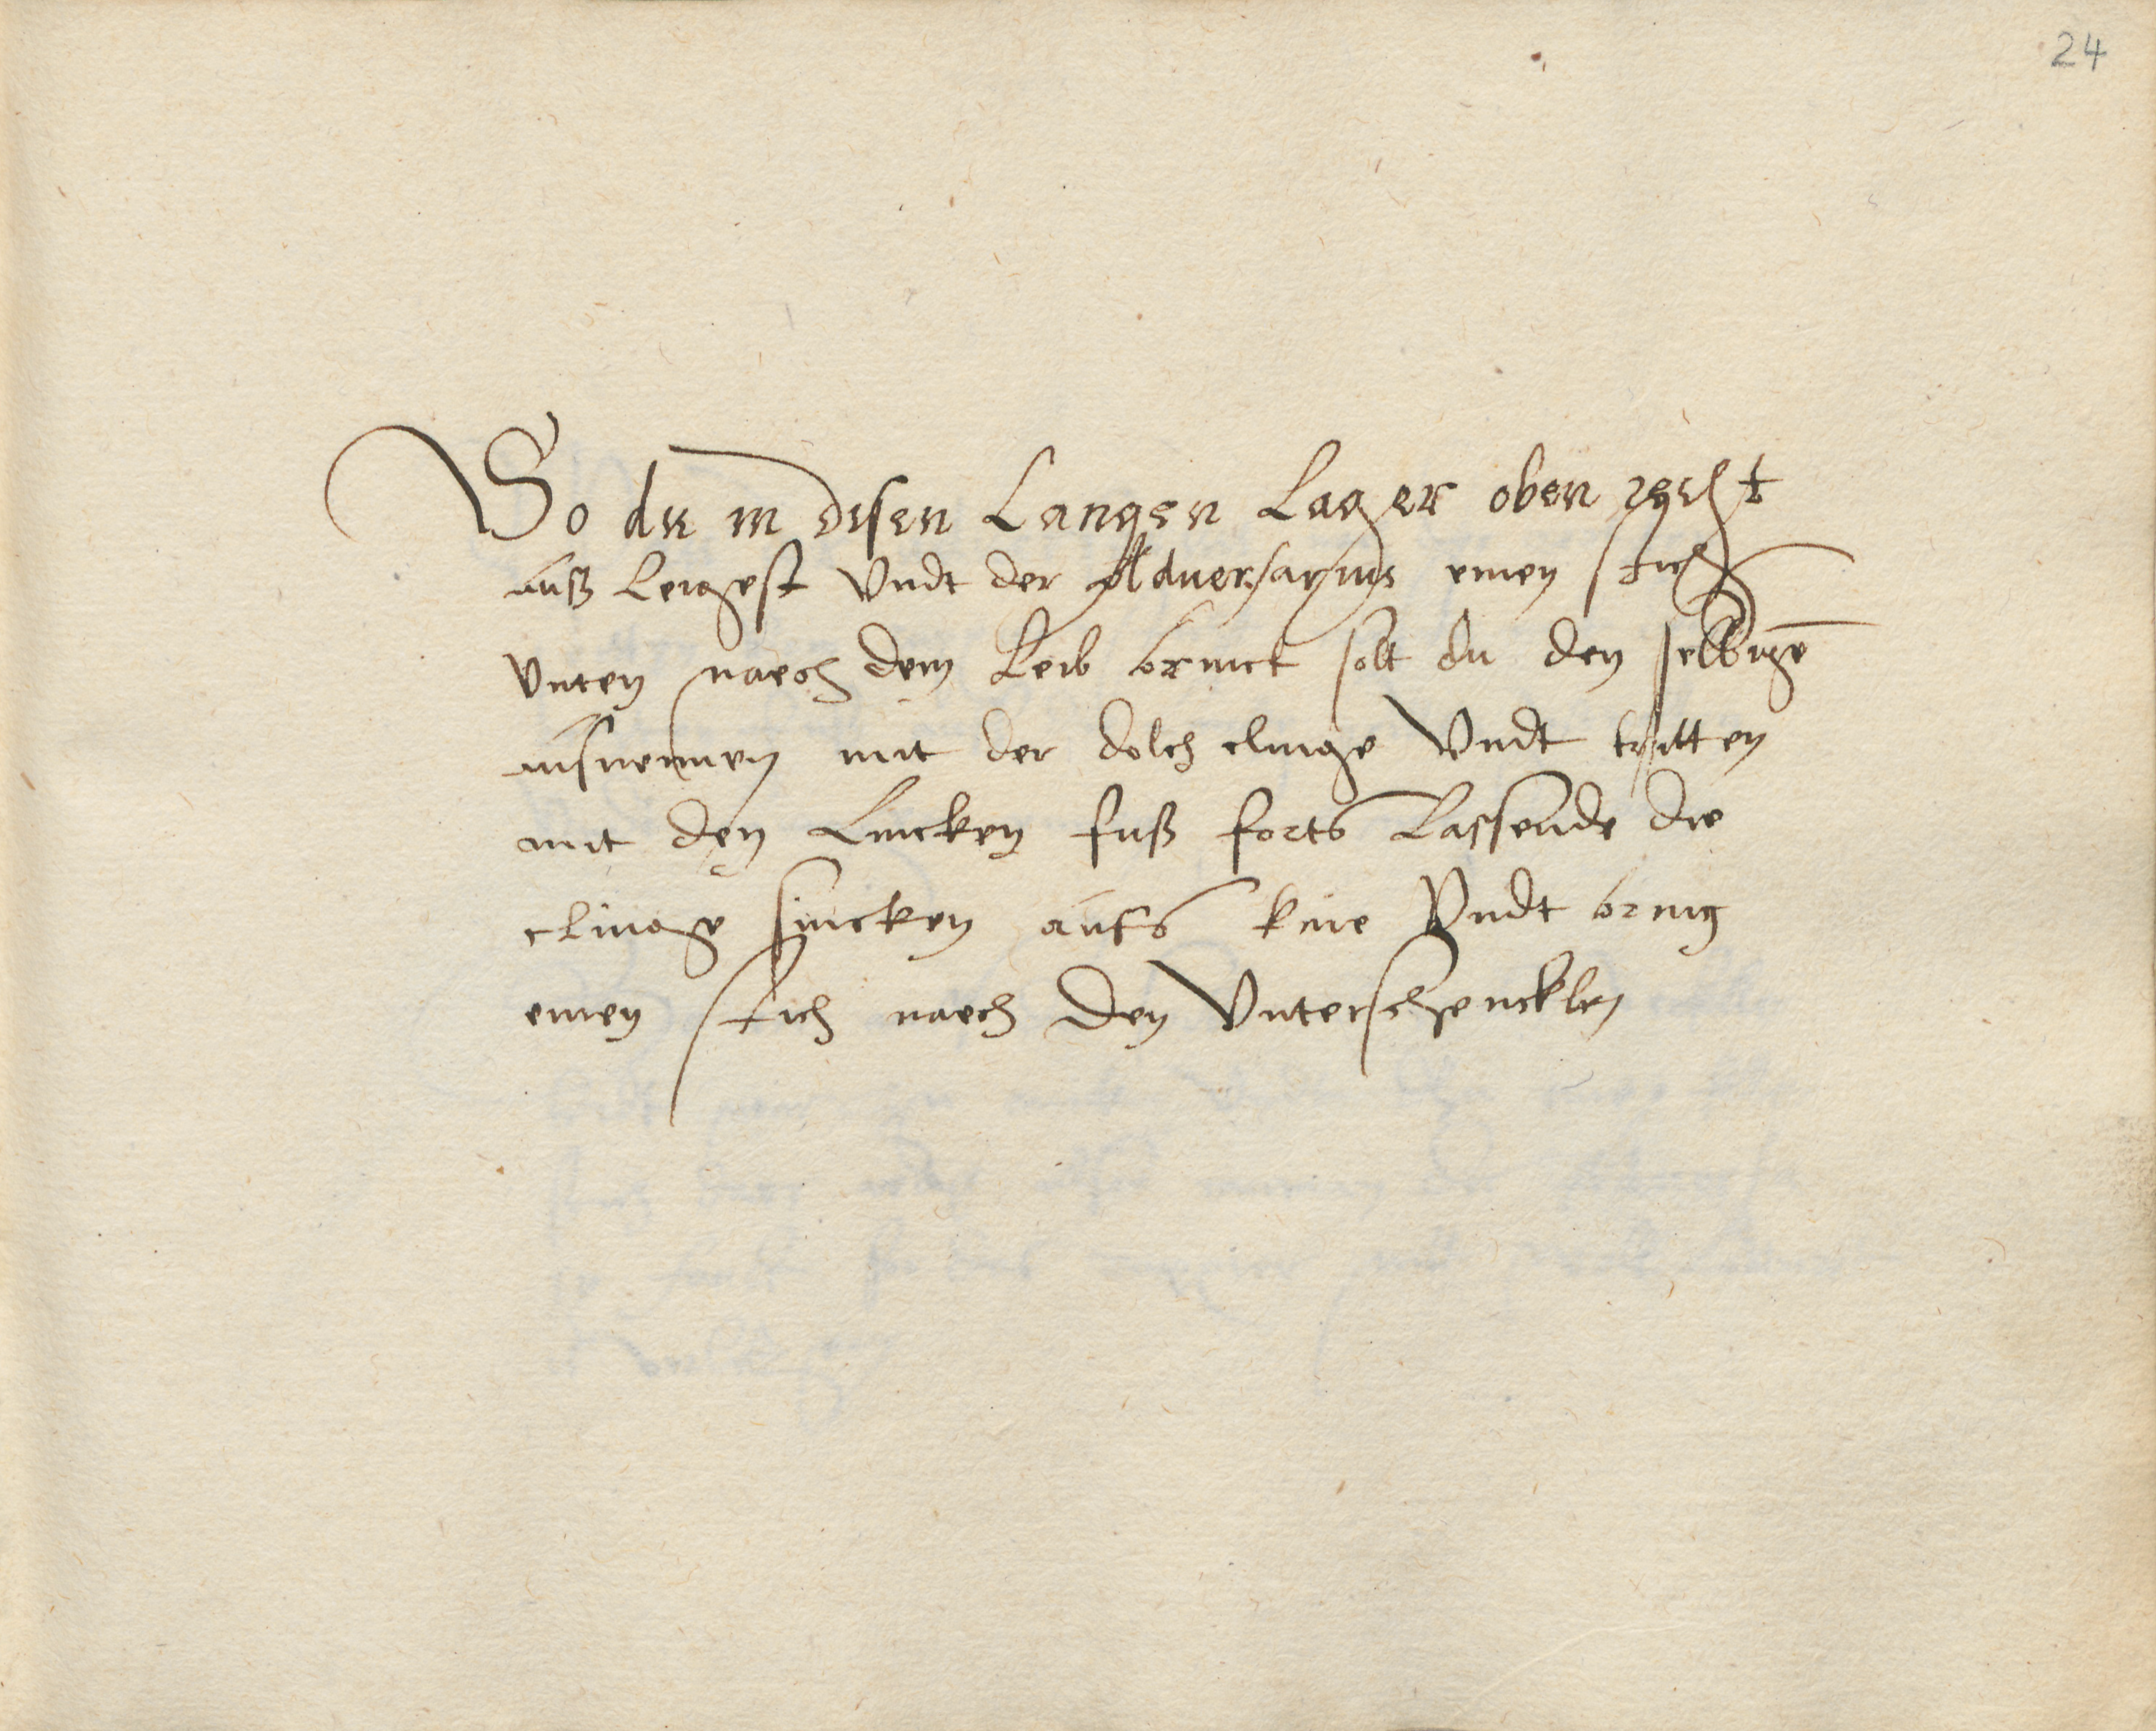 24
So du in disen Langen Lager oben recht
auß Leigest Vndt der Aduersarius einen stich
Vnten naech dem Leib brinct solt du den selbige
ausnemen mit der dolch clinge Vndt tritten
mit den Lincken fuß forts Lassende die
clinge sincken aufs knie Vndt bring
einen stich naech den Vnterschencklen